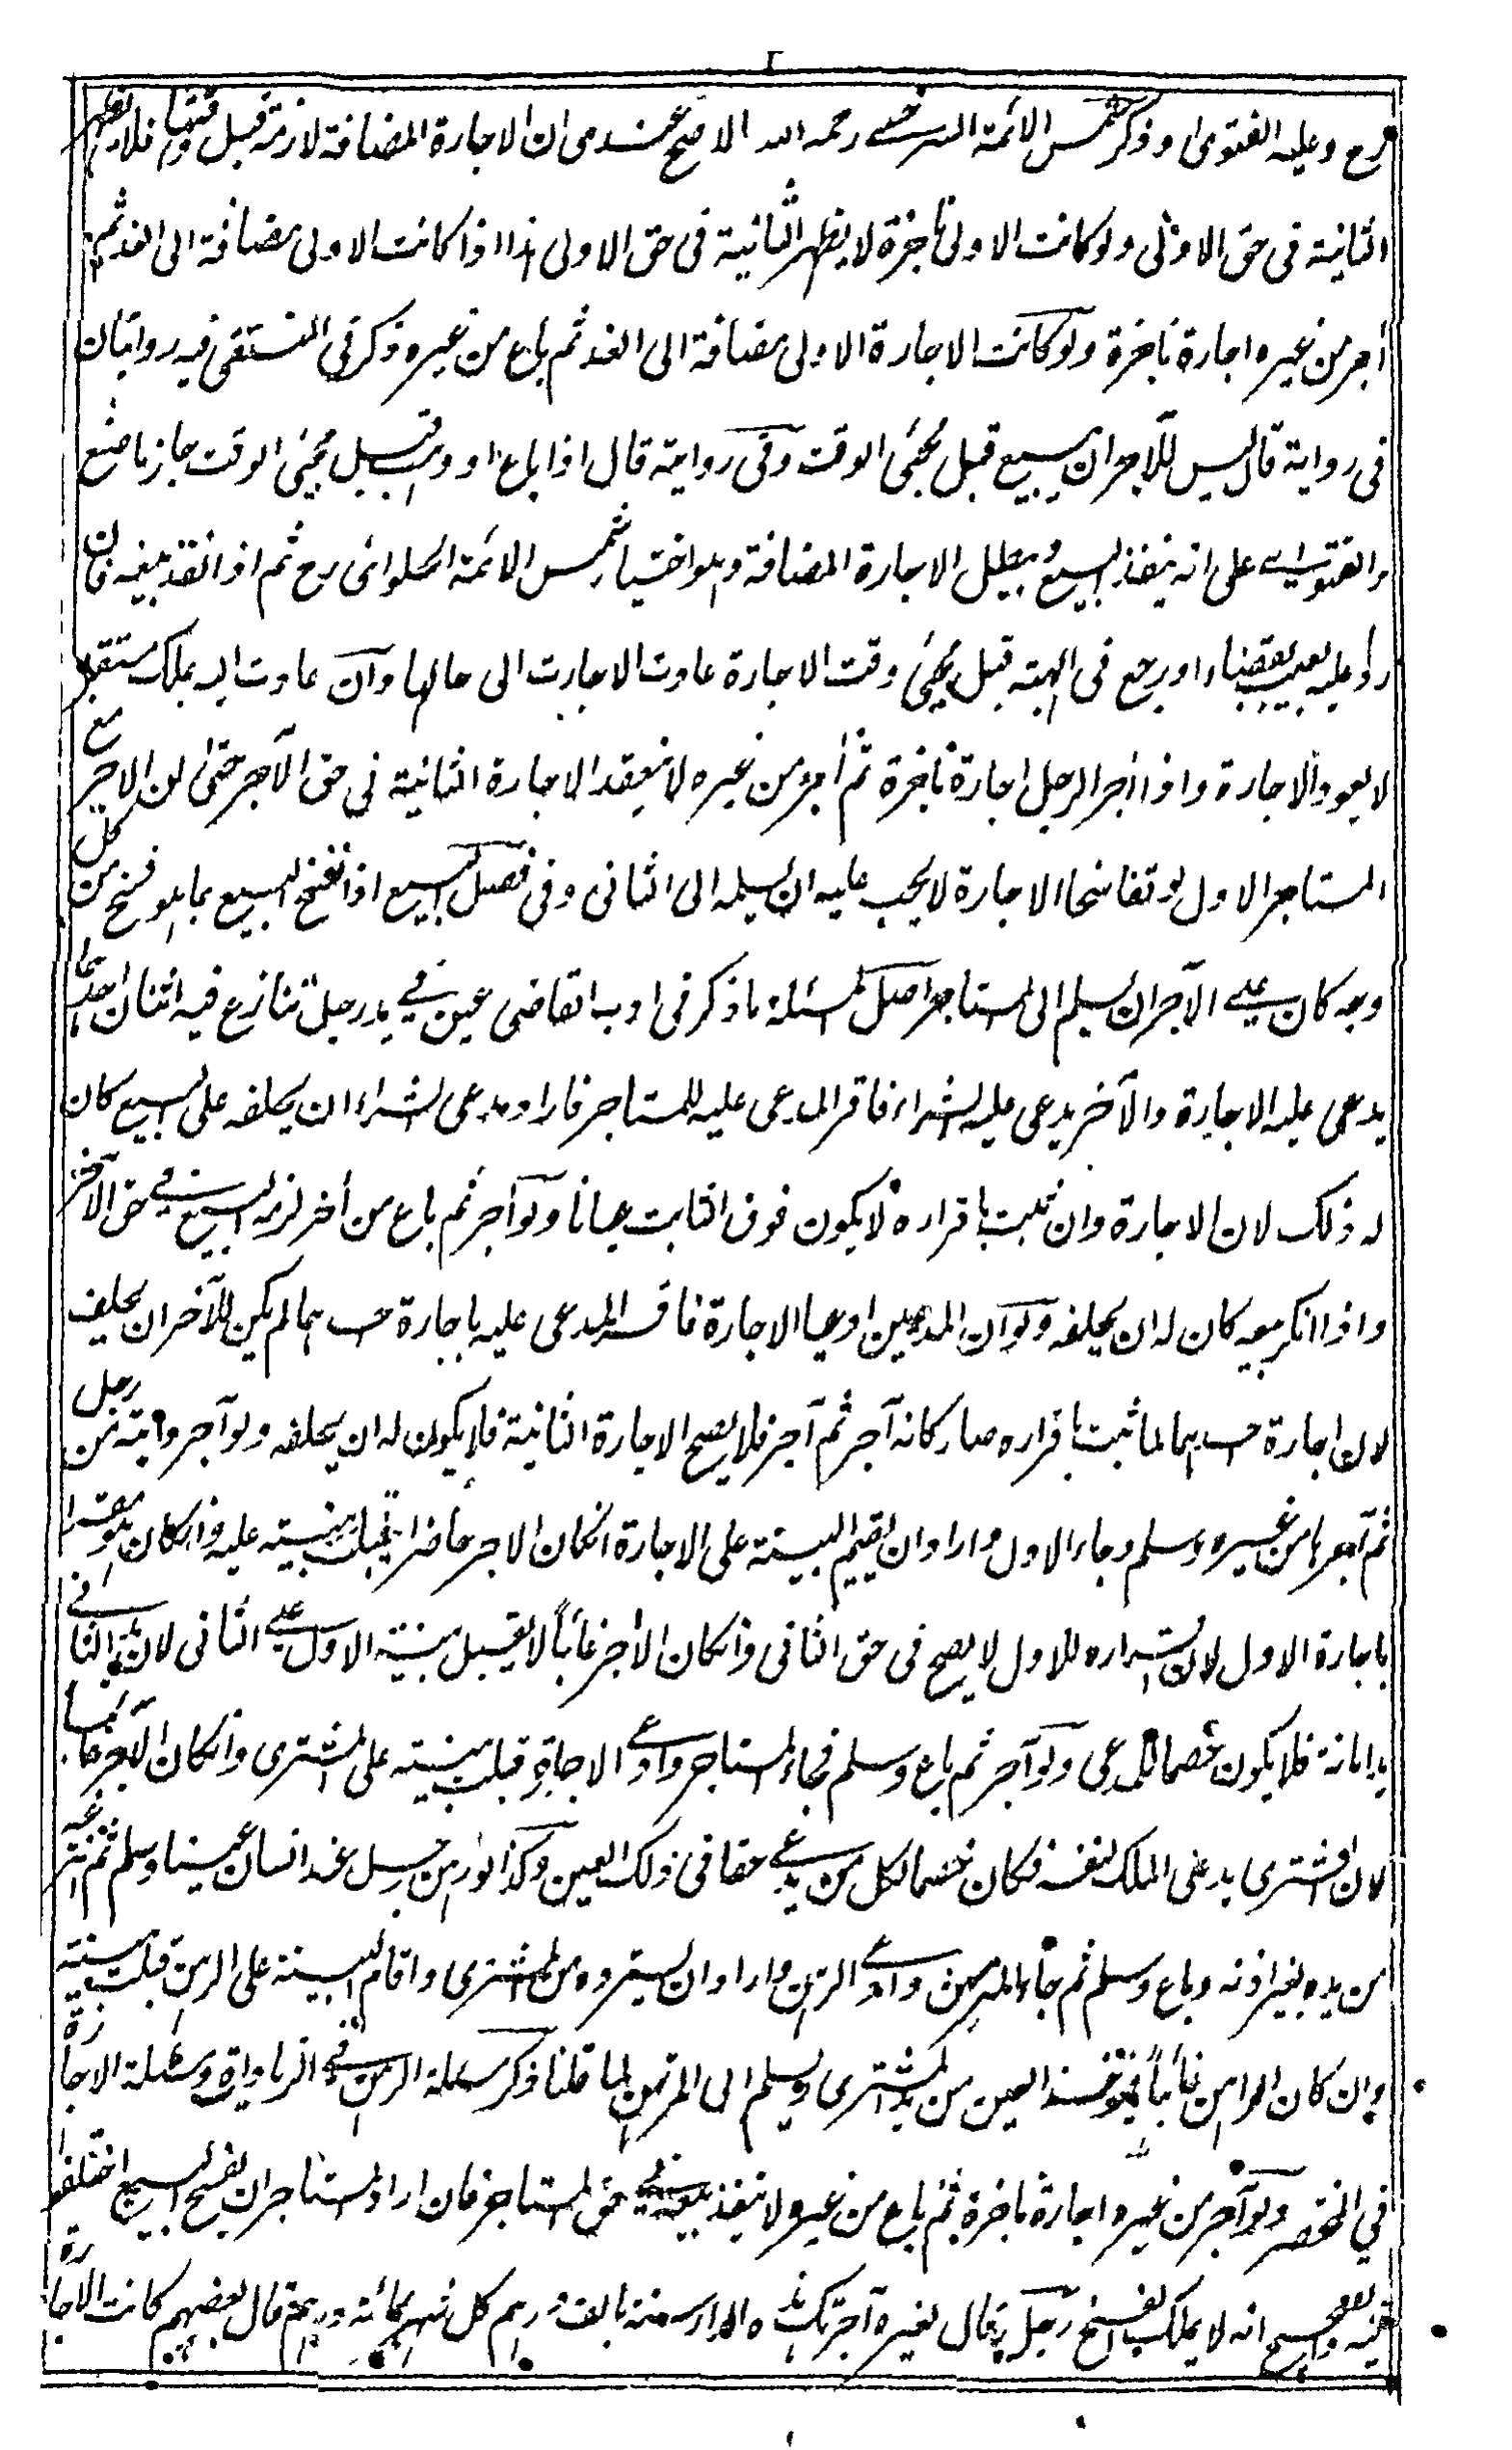 ٢
رح وعليه الفتوى وذكر شمس الائمة السرخسي رحمه الله الاصح عندى ان الاجارة المضافة لازمة قبل وقتها فلا يظهر
الثانية فى حق الاولى ولو كانت الاولى ناجزة لا يظهر الثانية فى حق الاولى هذا اذا كانت الاولى مضافة الى الغد ثم
أجر من غيره اجارة ناجزة ولو كانت الاجارة الاولى مضافة الى الغد ثم باع من غيره ذكر فى المنتقى فيه روايتان
فى رواية قال ليس للآجر ان يبيع قبل مجئ الوقت وفى رواية قال اذا باع او وهب قبل مجئ الوقت جاز ما صنع
والفتوى على انه ينفذ البيع ويبطل الاجارة المضافة وهو اختيار شمس الائمة الحلوائى رح ثم اذا نفذ بيعه فان
رد عليه بعيب بقضاء او رجع فى الهبة قبل مجئ وقت الاجارة عادت الاجارة الى حالها وان عادت اليه بملك مستقبل
لا يعود الاجارة واذا اجر الرجل اجارة ناجزة ثم أجر من غيره لا ينعقد الاجارة الثانية فى حق الآجر حتى لن الاجر مع
المستاجر الاول لو تفاسخا الاجارة لا يجب عليه ان يسلمه الى الثانى وفى فصل البيع اذا نفسخ البيع بما هو فسخ من كل
وجه كان على الآجر ان يسلم الى المستاجر اصل المسئلة ما ذكر فى ادب القاضى عين في يد رجل تنازع فيه اثنان احدهما
يدعى عليه الاجارة والآخر يدعى عليه الشراء فاقر المدعى عليه للمستاجر فاراد مدعى الشراء ان يحلفه على البيع كان
له ذلك لان الاجارة وان ثبت باقراره لا يكون فوق الثابت عيانا ولو آجر ثم باع من أخر لزمه البيع في حق الآخر
واذا انكر بيعه كان له ان يحلفه ولو ان المدعيين ادعيا الاجارة فاقر المدعى عليه باجارة احدهما لم يكن للآخر ان يحلف
لان اجارة احدهما لما ثبت باقراره صار كانه آجر ثم آجر فلا يصح الاجارة الثانية فلا يكون له ان يحلفه ولو آجر دابته من رجل
ثم آجرها من غيره وسلم وجاء الاول واراد ان يقيم البينة على الاجارة انكان الاجر حاضرا يقبل بينته عليه وانكان هو مقرا
باجارة الاول لان اقراره للاول لا يصح فى حق الثانى وانكان الاجر غائباً لا يقبل بينة الاول على الثانى لان يد الثاني
يد امانة فلا يكون خصما للمدعى ولو آجر ثم باع وسلم فجاء المستاجر وادعى الاجارة قبلت بينته على المشترى وانكان الآجر غائبا
لان المشترى يدعى الملك لنفسه فكان خصما لكل من يدعى حقا فى ذلك العين وكذا لو رهن رجل عند انسان عينا وسلم ثم اخذ
من يده بغير اذنه وباع وسلم ثم جاء المرتهن وادعى الرهن واراد ان يسترده من المشترى واقام البينة على الرهن قبلت بينته
وان كان الراهن غائباً فيؤخذ العين من يد المشترى ويسلم الى المرتهن لما قلنا ذكر مسئلة الرهن فى الزيادات ومسئلة الاجارة
في المختصر ولو آجر من غيره اجارة ناجزة ثم باع من غيره لا ينفذ بيعه فى حق المستاجر فان اراد المستاجر ان يفسخ البيع اختلفوا
فيه والصحيح انه لا يملك الفسخ رجل قال لغيره آجرتك هذه الدار سنة بالف درهم كل شهر بمائة درهم قال بعضهم كانت الاجارة